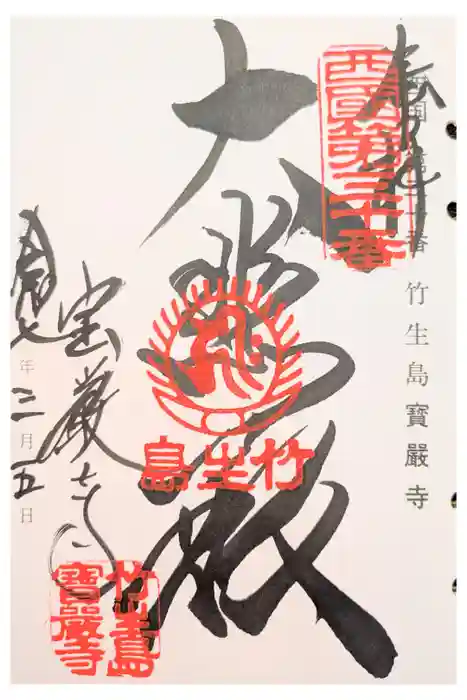 奉拝
西國第三十番
西国第三十番 竹生島寶厳寺
大悲殿
竹生島
宝厳寺
令和七年三月五日
竹生島
寳嚴寺